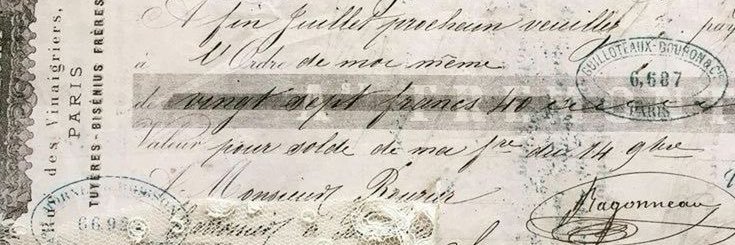 A fin Juillet prochain veuillez pay
à l'Ordre de moi même
de vingt sept francs 40
Valeur pour solde de ma fre du 14 9bre
Monsieur
Ragonneau
GUILLOTEAUX-BOURON & Cie
6,687
PARIS
Rue des Vinaigriers,
PARIS
TUYÈRES-BISÉNIUS FRÈRES
669